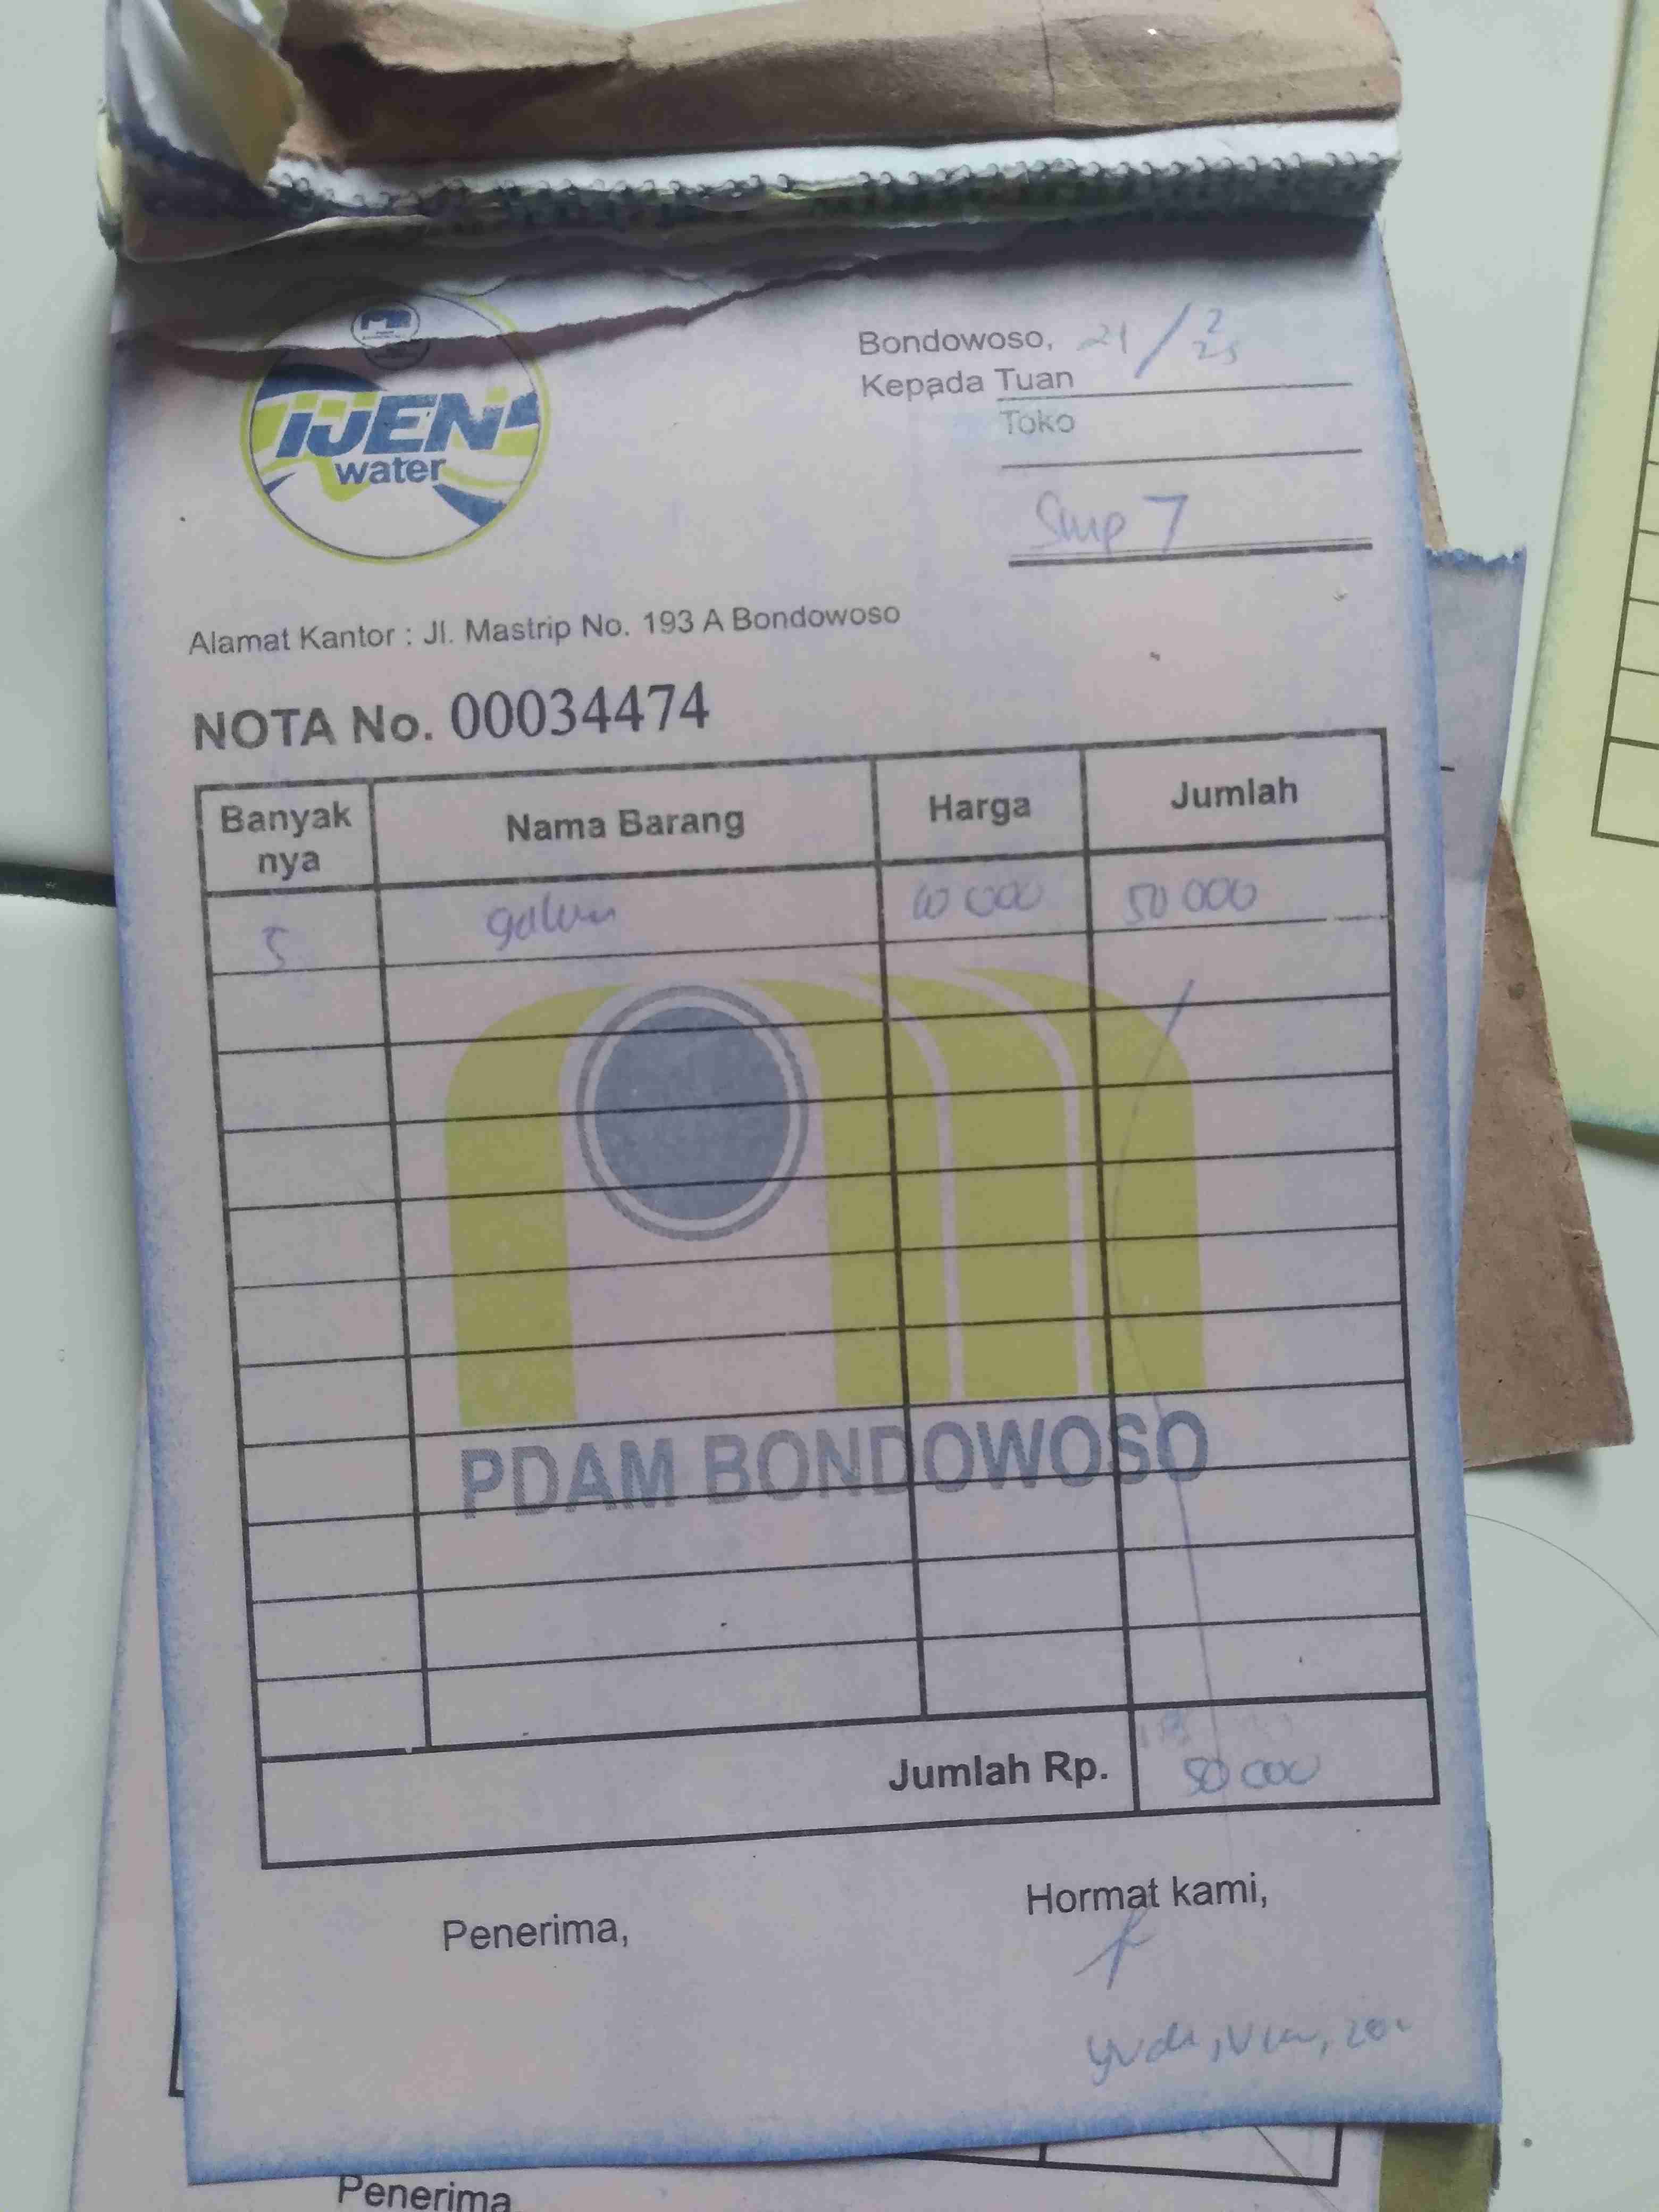 IJEN
water
Bondowoso, 21/2 25
Kepada Tuan
Toko
Smp 7
Alamat Kantor : Jl. Mastrip No. 193 A Bondowoso
NOTA No. 00034474
Banyak nya Nama Barang Harga Jumlah
5 galon 10 000 50 000
PDAM BONDOWOSO
Jumlah Rp. 50 000
Penerima, Hormat kami,
Penerima